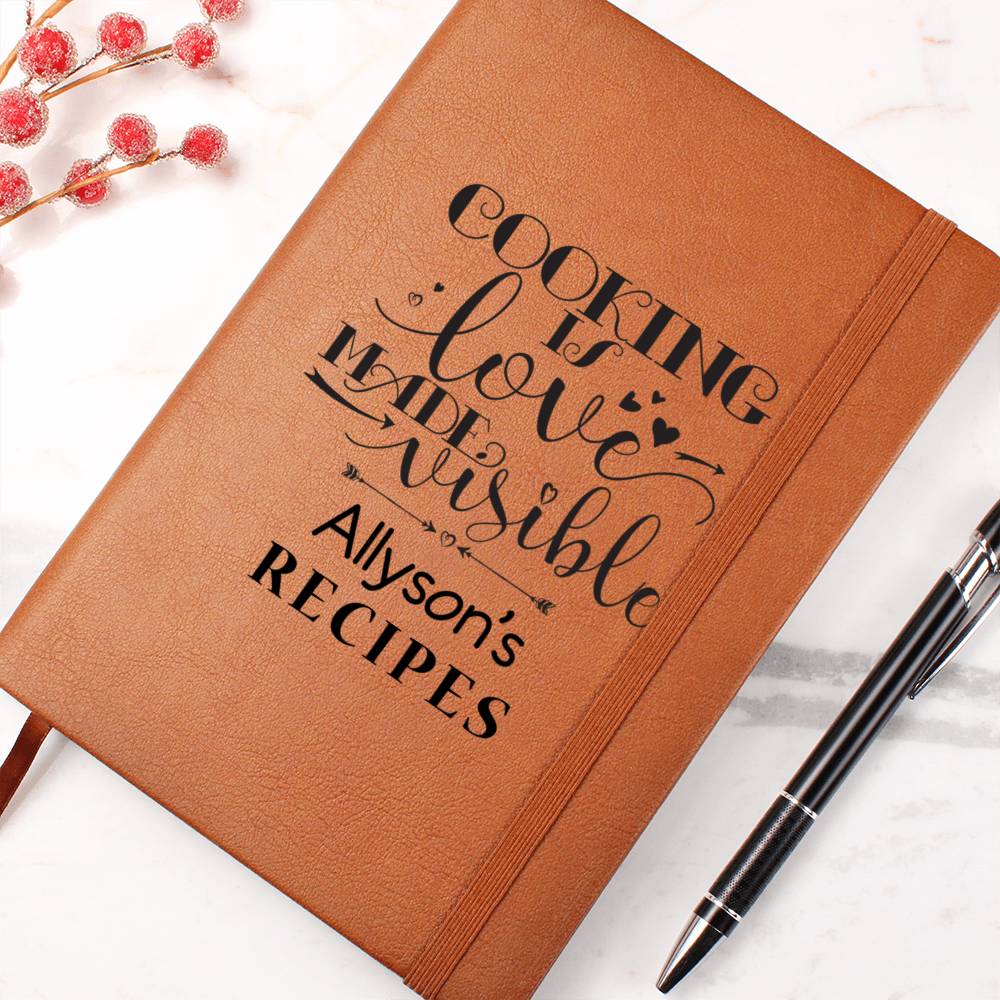 COOKING
IS
love
MADE
visible
Allyson's
RECIPES